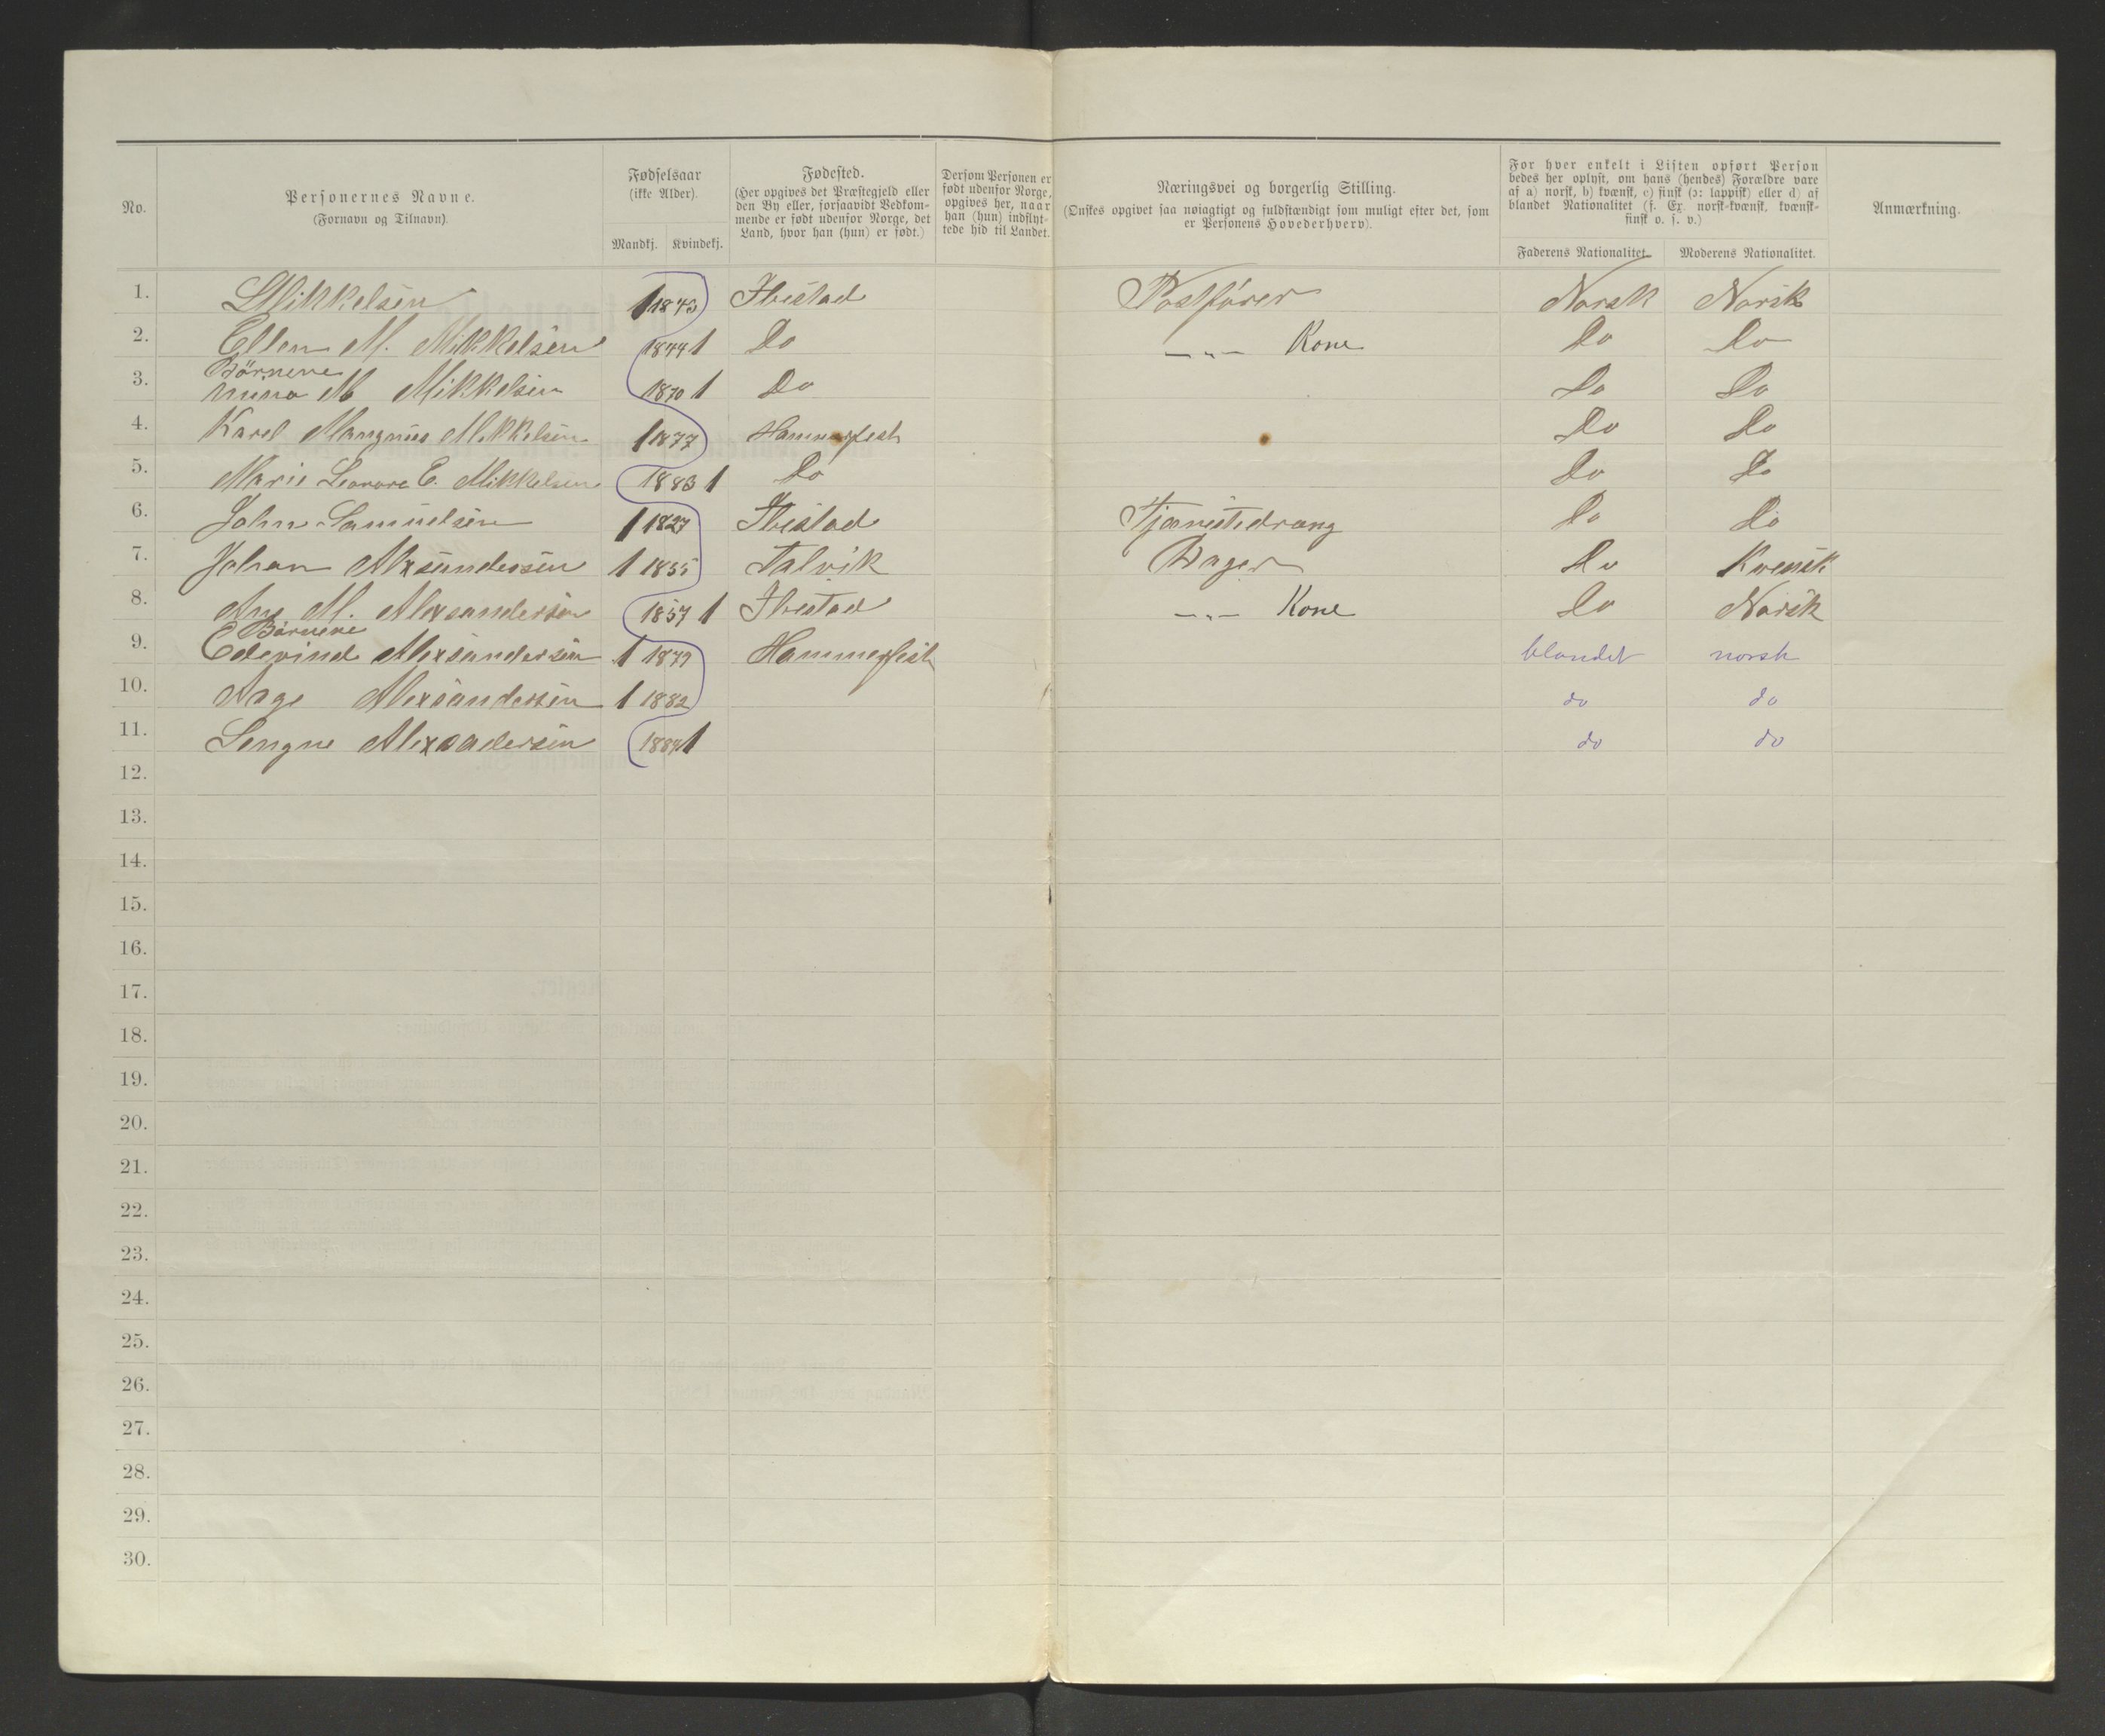 No.
Personernes Navne.
(Fornavn og Tilnavn).
Fødselsaar
(ikke Alder).
Mandkj. Kvindekj.
Fødested.
(Her opgives det Præstegjeld eller
den By eller, forsaavidt Vedkom-
mende er født udenfor Norge, det
Land, hvor han (hun) er født.)
Dersom Personen er
født udenfor Norge,
opgives her, naar
han (hun) indflyt-
tede hid til Landet.
Næringsvei og borgerlig Stilling.
(Ønskes opgivet saa nøiagtigt og fuldstændigt som muligt efter det, som
er Personens Hovederhverv).
For hver enkelt i Listen opført Person
bedes her oplyst, om hans (hendes) Forældre vare
af a) norsk, b) kvænsk, c) finsk (ɔ: lappisk) eller d) af
blandet Nationalitet (f. Ex. norsk-kvænsk, kvænsk-
finsk o. s. v.)
Faderens Nationalitet. Moderens Nationalitet.
Anmærkning.
1. Mikkelsen 1 1843 Ibestad Postfører Norsk Norsk
2. Ellen M. Mikkelsen 1844 1 Do —„— Kone Do Do
Börnene
3. M Mikkelsen 1870 1 Do Do Do
4. Karl Mangnus Mikkelsen 1 1877 Hammerfest Do Do
5. Marie Leonore E. Mikkelsen 1883 1 Do Do Do
6. John Samuelsen 1 1827 Ibestad Tjenestedreng Do Do
7. Johan Alxsandersen 1 1855 Talvik Bager Do Kvensk
8. Ane M. Alexsandersen 1857 1 Ibestad —„— Kone Do Norsk
Börnene
9. Edevind Alexsandersen 1 1879 Hammerfest blandet norsk
10. Aage Alexsandersen 1 1882 do do
11. Alexsandersen 1884 1 do do
12.
13.
14.
15.
16.
17.
18.
19.
20.
21.
22.
23.
24.
25.
26.
27.
28.
29.
30.